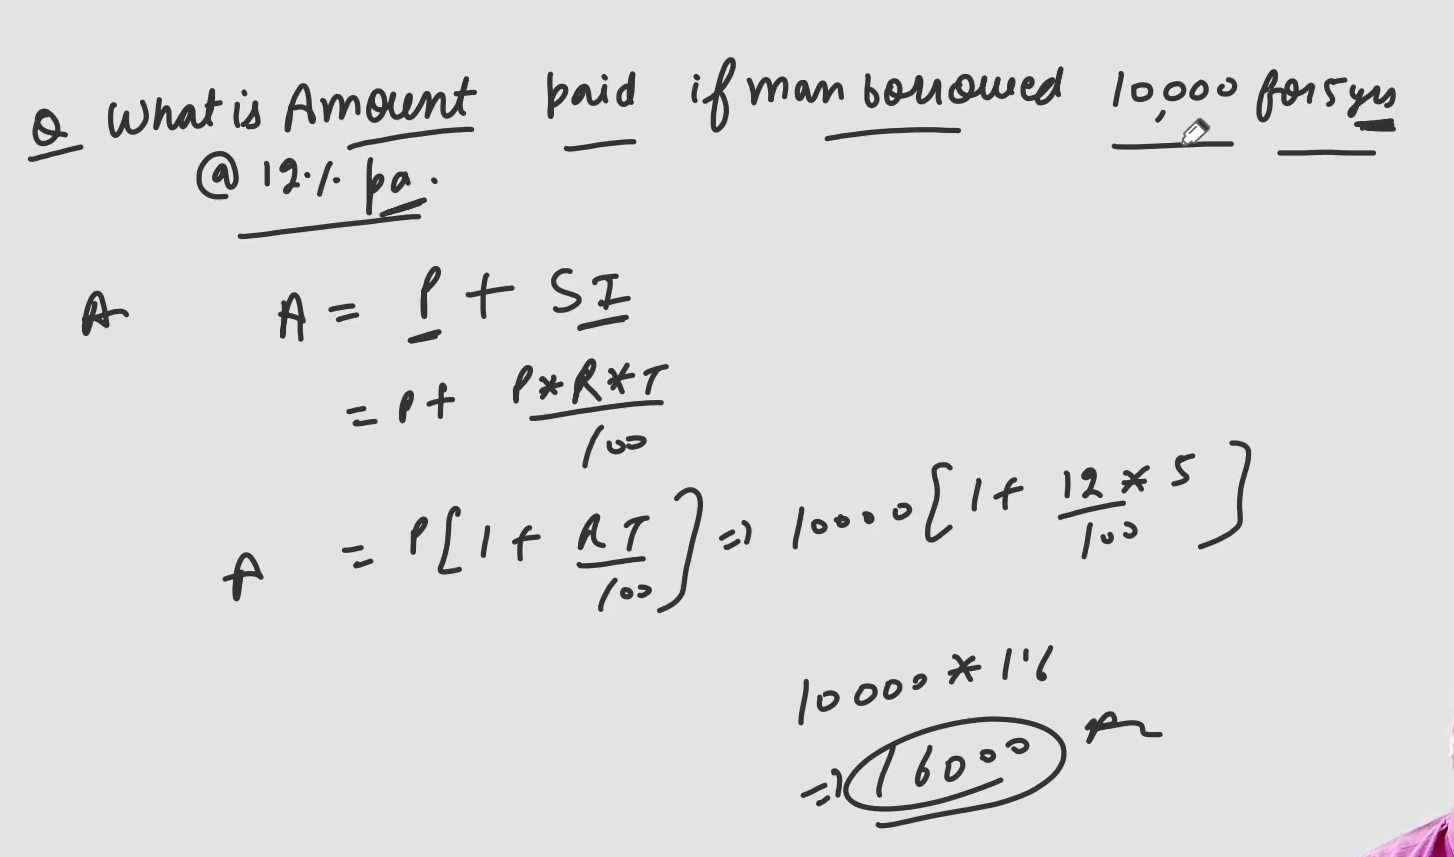 Q What is Amount paid if man borrowed 10,000 for 5 yrs
@ 12.% pa.
A A = P + SI
= P + P*R*T/100
A = P[1 + RT/100] => 10000[1 + 12*5/100]
10000 * 1.6
=> 16000 A